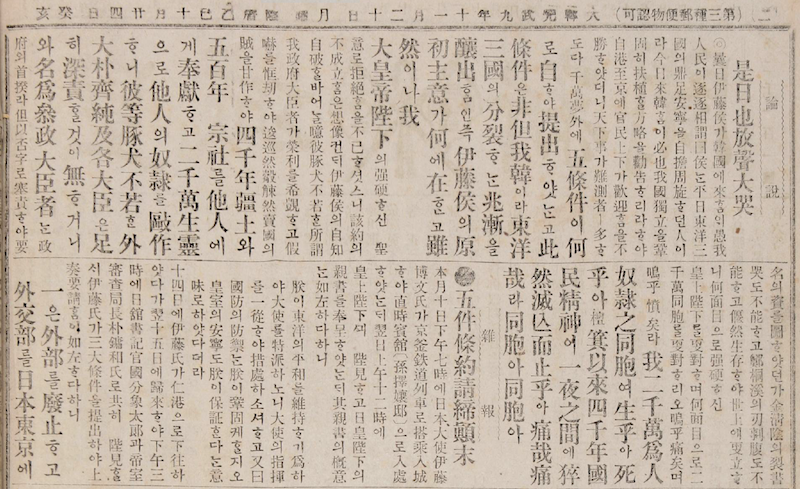 二 (第三種郵便物認可) 大韓光武九年十一月二十日 月曜 陰曆乙巳十月廿四日癸亥
論說
是日也放聲大哭
◎曩日伊藤侯가韓國에來홈의愚我
人民이逐逐相謂曰侯ᄂᆞᆫ平日東洋三
國의鼎足安寧을自擔周旋ᄒᆞ던人이
라今日來韓홈이必也我國獨立을鞏
固히扶植ᄒᆞᆯ方畧을勸告ᄒᆞ리라ᄒᆞ야
自港至京에官民上下가歡迎홈을不
勝ᄒᆞ얏더니天下事가難測者ㅣ多ᄒᆞ
도다千萬夢外에五條件이何
로自ᄒᆞ야提出ᄒᆞ얏ᄂᆞᆫ고此
條件은非但我韓이라東洋
三國의分裂ᄒᆞᄂᆞᆫ兆漸을
釀出홈인즉伊藤侯의原
初主意가何에在ᄒᆞᆫ고雖
然이나我
大皇帝陛下의强硬ᄒᆞ신 聖
意로拒絕홈을不已ᄒᆞ셧스니該約의
不成立홈은想像컨ᄃᆡ伊藤侯의自知
自破ᄒᆞᆯ바어ᄂᆞᆯ噫彼豚犬不若ᄒᆞᆫ所謂
我政府大臣者가榮利를希覬ᄒᆞ고假
嚇를恇劫ᄒᆞ야逡巡然觳觫然賣國의
賊을甘作ᄒᆞ야四千年疆土와
五百年 宗社를他人에
게奉獻ᄒᆞ고二千萬生靈
으로他人의奴隷를敺作
ᄒᆞ니彼等豚犬不若ᄒᆞᆫ外
大朴齊純及各大臣은足
히深責ᄒᆞᆯ것이無ᄒᆞ거니
와名爲參政大臣者ᄂᆞᆫ政
府의首揆라但以否字로塞責ᄒᆞ야要
名의資를圖ᄒᆞ얏던가金淸陰의裂書
哭도不能ᄒᆞ고鄭桐溪의刃剖腹도不
能ᄒᆞ고偃然生存ᄒᆞ야世上에更立ᄒᆞ
니何面目으로强硬ᄒᆞ신
皇上陛下를更對ᄒᆞ며何面目으로二
千萬同胞를更對ᄒᆞ리오嗚乎痛矣며
嗚乎憤矣라我二千萬爲人
奴隷之同胞여生乎아死
乎아檀箕以來四千年國
民精神이一夜之間에猝
然滅亡而止乎아痛哉痛
哉라同胞아同胞아
雜報
五件條約請締顚末
本月十日下午七時에日本大使伊藤
博文氏가京釜鉄道列車로搭乘入城
ᄒᆞ야直時賓館(孫擇孃邸)으로入處
ᄒᆞ얏ᄂᆞᆫᄃᆡ翌日上午十二時에
皇上陛下ᄭᅴ 陛見ᄒᆞ고日皇陛下의
親書를奉呈ᄒᆞ얏ᄂᆞᆫᄃᆡ其親書의槪意
ᄂᆞᆫ如左ᄒᆞ다ᄒᆞ니
朕이東洋의平和를維持ᄒᆞ기爲ᄒᆞ
야大使를特派ᄒᆞ노니大使의指揮
를一從ᄒᆞ야措處ᄒᆞ소셔ᄒᆞ고又曰
國防의防禦ᄂᆞᆫ朕이鞏固케ᄒᆞᆯ지오
皇室의安寧도朕이保証ᄒᆞᆫ다ᄂᆞᆫ意
味로ᄒᆞ얏다더라
十四日에伊藤氏가仁港으로下往ᄒᆞ
얏다가翌十五日에歸來ᄒᆞ야下午三
時에日舘書記官國分象太郎과帝室
審査局長朴鏞和氏로共히 陛見ᄒᆞᆯ
ᄉᆡ伊藤氏가三大條件을提出ᄒᆞ야上
奏要請홈이如左ᄒᆞ다ᄒᆞ니
一은外部를廢止ᄒᆞ고
外交部를日本東京에